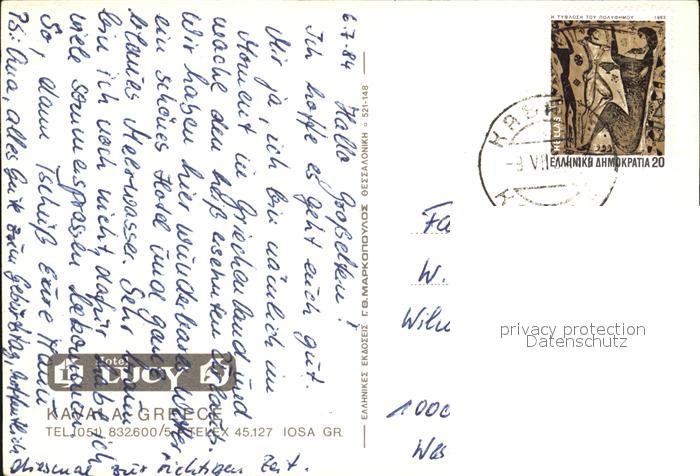 6.7.84
Hallo Großeltern!
Ich hoffe es geht euch gut.
Mir ja, ich bin nämlich im
Moment in Griechenland und
mache den heiß ersehnten Urlaub.
Wir haben hier wunderbares Wetter,
ein schönes Hotel und ganz
blaues Meerwasser. Sehr braun
bin ich noch nicht, dafür habe ich
viele Sommersprossen bekommen.
So, dann Tschüß Eure
Ps: Oma, alles Gute zum Geburtstag, hoffentlich
diesmal zur richtigen Zeit.
Hotel
LUCY
KAVALA GREECE
TEL.(051) 832.600/5 TELEX 45.127 IOSA GR.
ΕΛΛΗΝΙΚΕΣ ΕΚΔΟΣΕΙΣ Γ.Θ.ΜΑΡΚΟΠΟΥΛΟΣ ΘΕΣΣΑΛΟΝΙΚΗ 521-148
1983
HELLAS
ΕΛΛΗΝΙΚΗ ΔΗΜΟΚΡΑΤΙΑ 20
Fa
W.
Wilm
1000
Wes
privacy protection
Datenschutz